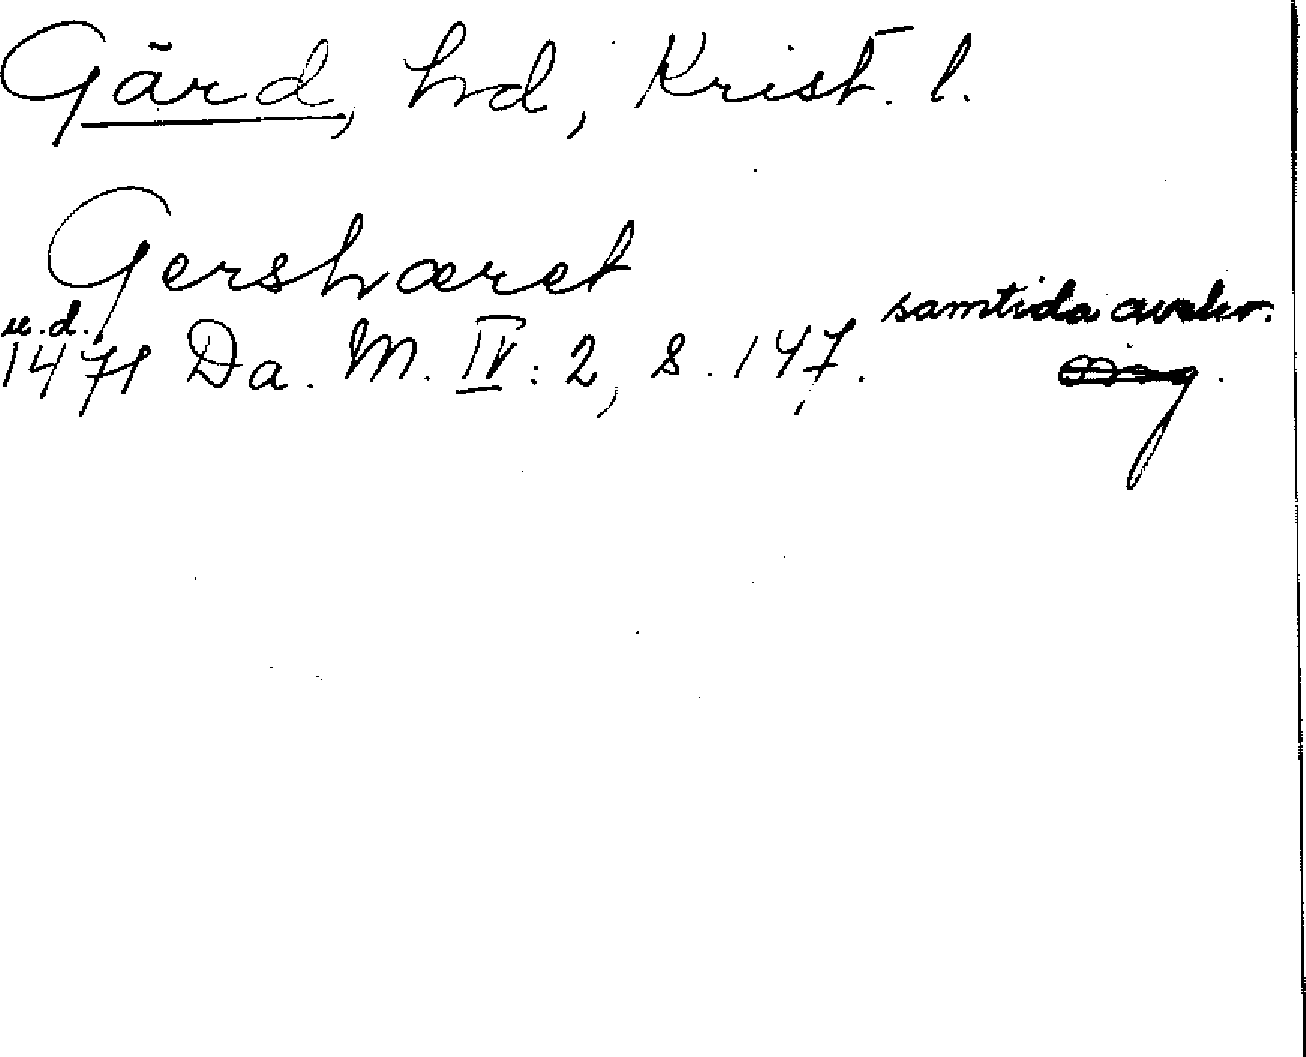 Gärd, hd, Krist. l.
Gershæret
u.d.
1471 Da. M. IV: 2, s. 147. samtida avskr.